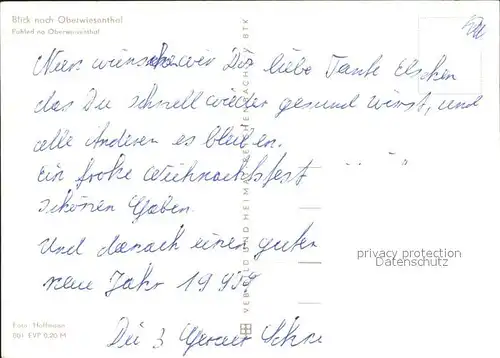 Blick nach Oberwiesenthal
Pohled na Oberwiesenthal
Nun wünschen wir Dir liebe Tante Elschen
das Du schnell wieder gesund wirst, und
alle Anderen es bleiben.
Ein frohe Weihnachtsfest
schönen Gaben
Und danach einen guten
neue Jahr 19
Die 3 Geraer
Foto: Hoffmann
EVP 0,20 M
VEB BILD UND HEIMAT REICHENBACH (V) BTK
privacy protection
Datenschutz